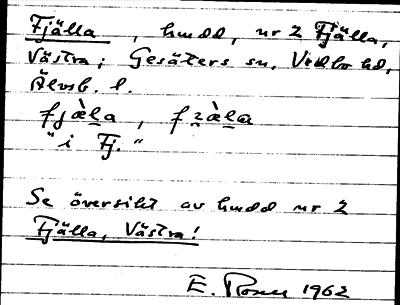 Fjälla, hmdd, nr 2 Fjälla,
Västra; Gesäters sn, Vedbo hd,
Älvsb. l.
fjàla, fzàla
"i Fj."
Se översikt av hmdd nr 2
Fjälla, Västra!
E. Rosen 1962